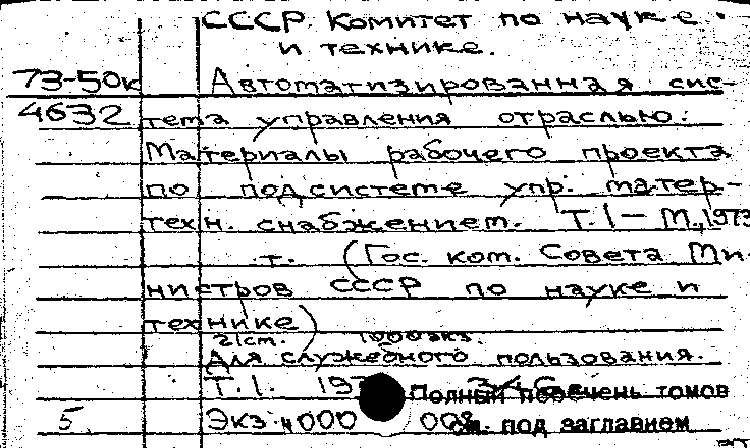 СССР. Комитет по науке
и технике.
73-50к Автоматизированная сис-
4632 тема управления отраслью:
Материалы рабочего проекта
по подсистеме упр. матер.-
техн. снабжением. Т.1 – М., 1973
т. (Гос. ком. Совета Ми-
нистров СССР по науке и
технике)
21 ст. 1000 экз.
Для служебного пользования.
Т.1. 197 Полный перечень томов
5. Экз. № 000 см. под заглавием